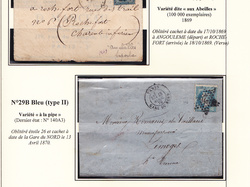 à rochefort sur
Rochefort
Charente inférieure
Variété dite « aux Abeilles »
(100 000 exemplaires)
1869
Oblitéré cachet à date du 17/10/1869
à ANGOULEME (départ) et ROCHE
FORT (arrivée) la 18/10/1869. (Verso)
N°29B Bleu (type II)
Variété « à la pipe »
(Dernier état : N° 140A3)
Oblitéré étoile 26 et cachet à
date de la Gare du NORD le 13
Avril 1870.
Monsieur
Limoges